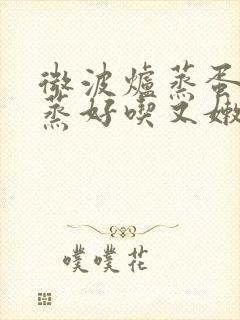 微波爐蒸蛋
蒸好喫又嫩
噗噗花